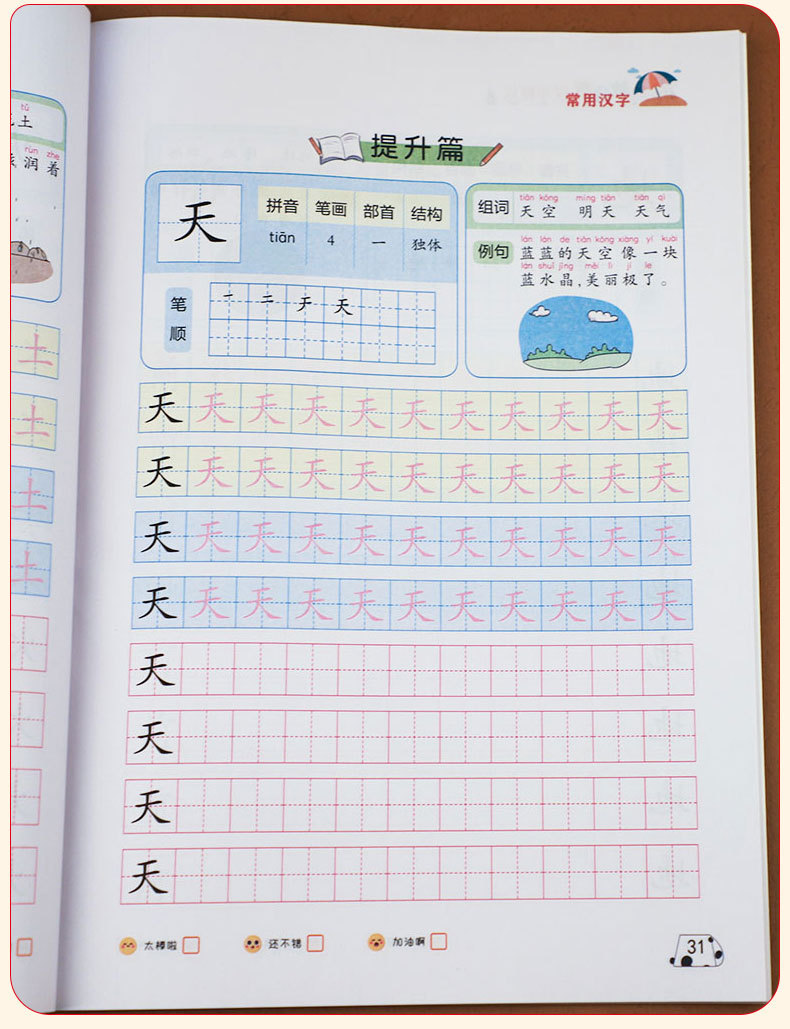 tǔ
土
rùn zhe
润着
土
土
土
土
常用汉字
提升篇
天
拼音 笔画 部首 结构
tiān 4 一 独体
笔顺
一 二 于 天
tiān kōng míng tiān tiān qì
组词 天空 明天 天气
lán lán de tiān kōng xiàng yí kuài
例句 蓝蓝的天空像一块
lán shuǐ jīng měi lì jí le
蓝水晶,美丽极了。
天 天 天 天 天 天 天 天 天 天 天
天 天 天 天 天 天 天 天 天 天 天
天 天 天 天 天 天 天 天 天 天 天
天 天 天 天 天 天 天 天 天 天 天
天
天
天
天
太棒啦 还不错 加油啊
31